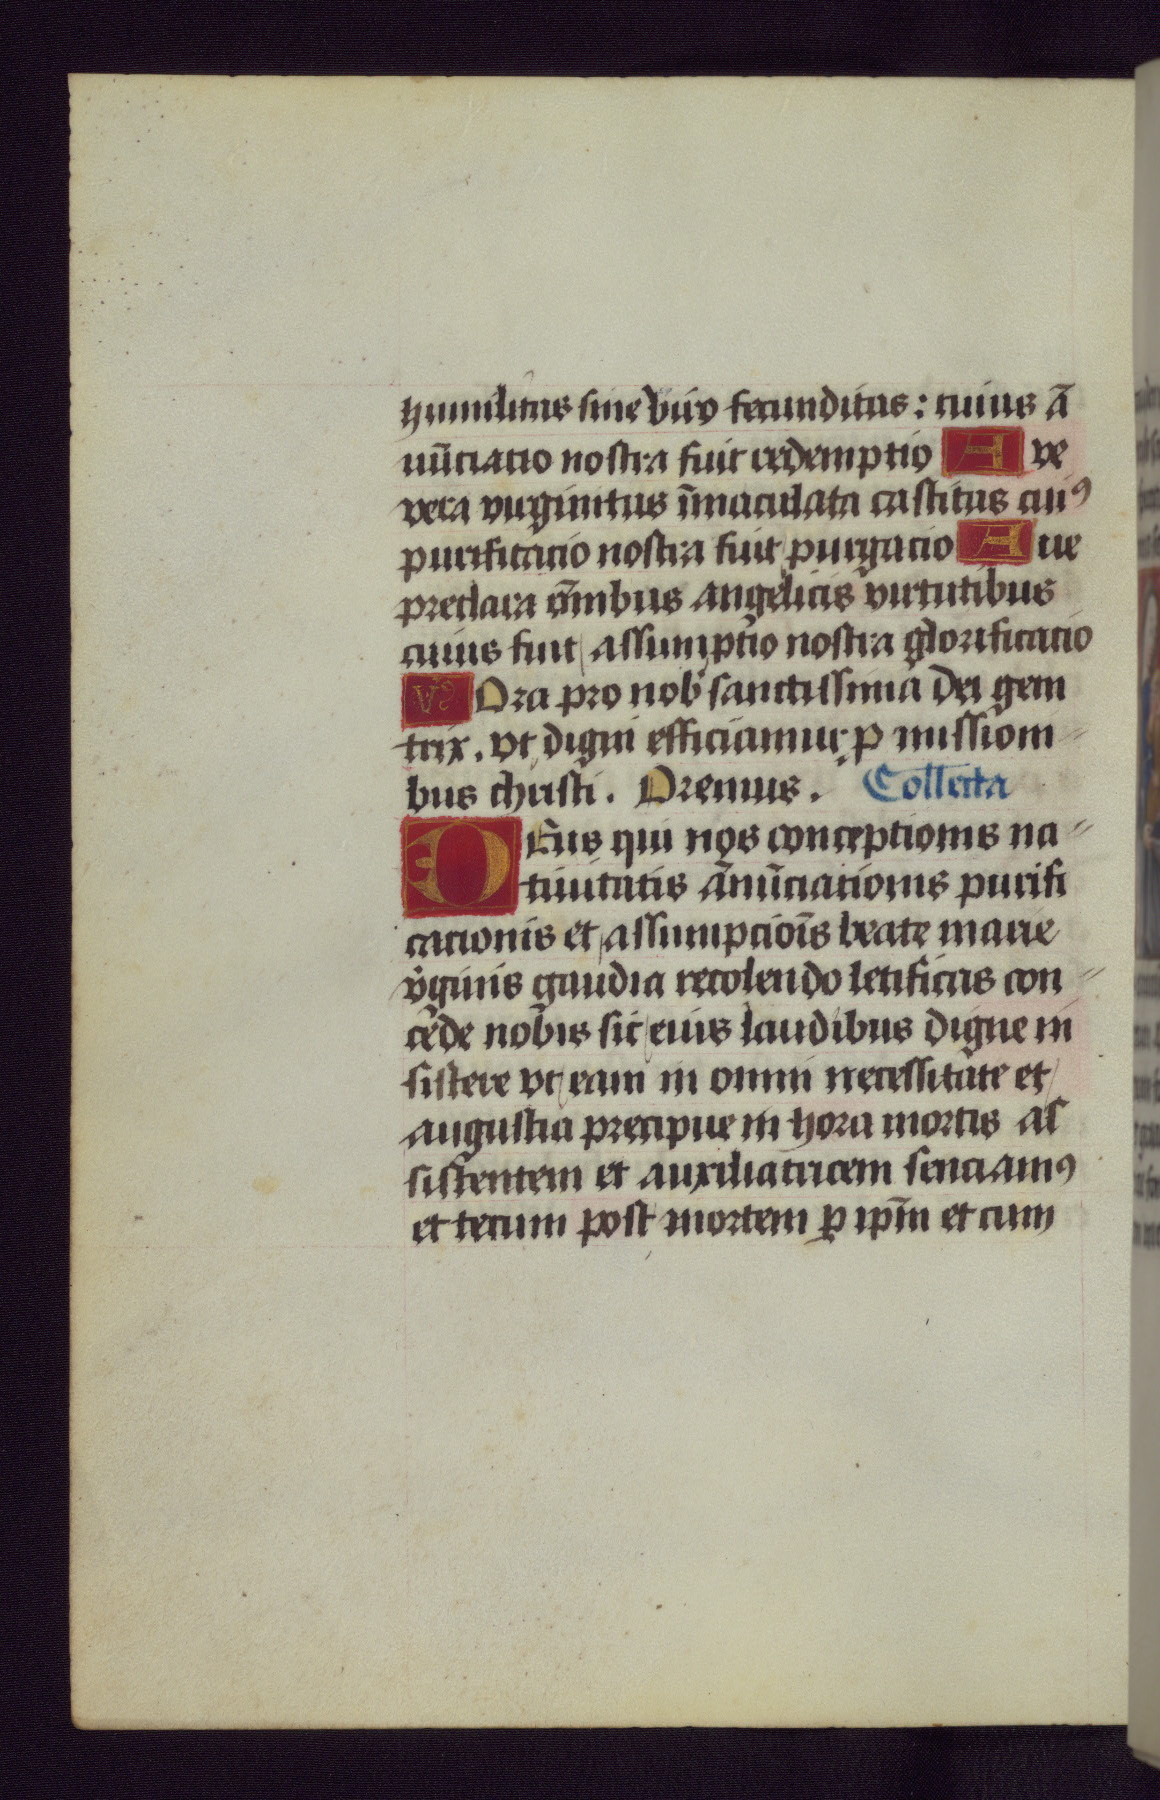 humilitas sine viro fecunditas : cuius ā
nūciacio nostra fuit redemptio Ave
vera virginitas īmaculata castitas cuiꝰ
purificacio nostra fuit purgacio Aue
preclara om̄ibus angelicis virtutibus
cuius fuit assumptio nostra glorificatio
Vs Ora pro nob' sanctissima dei geni
trix . vt digni efficiamur ꝓmissioni
bus christi . Oremus . Collecta
DEus qui nos conceptionis na
tiuitatis ānūciationis purifi
cacionis et assumpciōis beate marie
v'ginis gaudia recolendo letificas con
cede nobis sic eius laudibus digne in
sistere vt eam in omni necessitate et
angustia precipue in hora mortis as
sistentem et auxiliatricem senciamꝰ
et tecum post mortem ꝑ ip̄m et cum